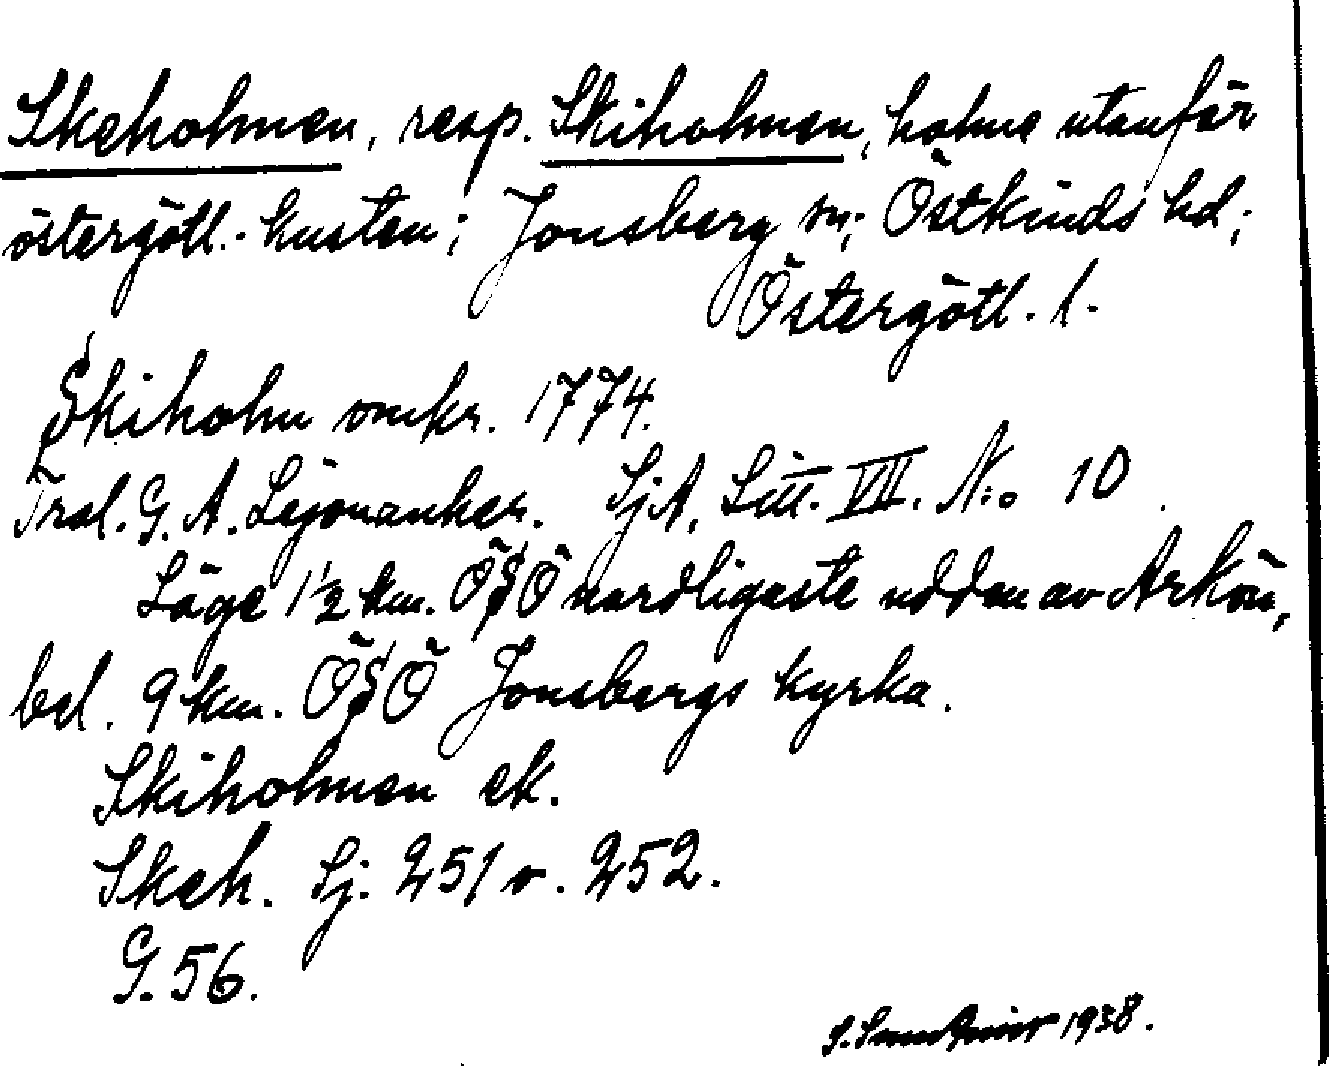 Skeholmen, resp. Skiholmen, holme utanför
östergötl. kusten; Jonsberg sn; Östkinds hd;
Östergötl. l.
Skiholm omkr. 1774.
Tral. G. A. Lejonanker. SjA, Litt. VII. No 10
Läge 1½ km. ÖSÖ nordligaste udden av Arkön,
bel. 9 km. ÖSÖ Jonsbergs kyrka.
Skiholmen ek.
Skeh. Sj. 251 o. 252.
G. 56.
1938.